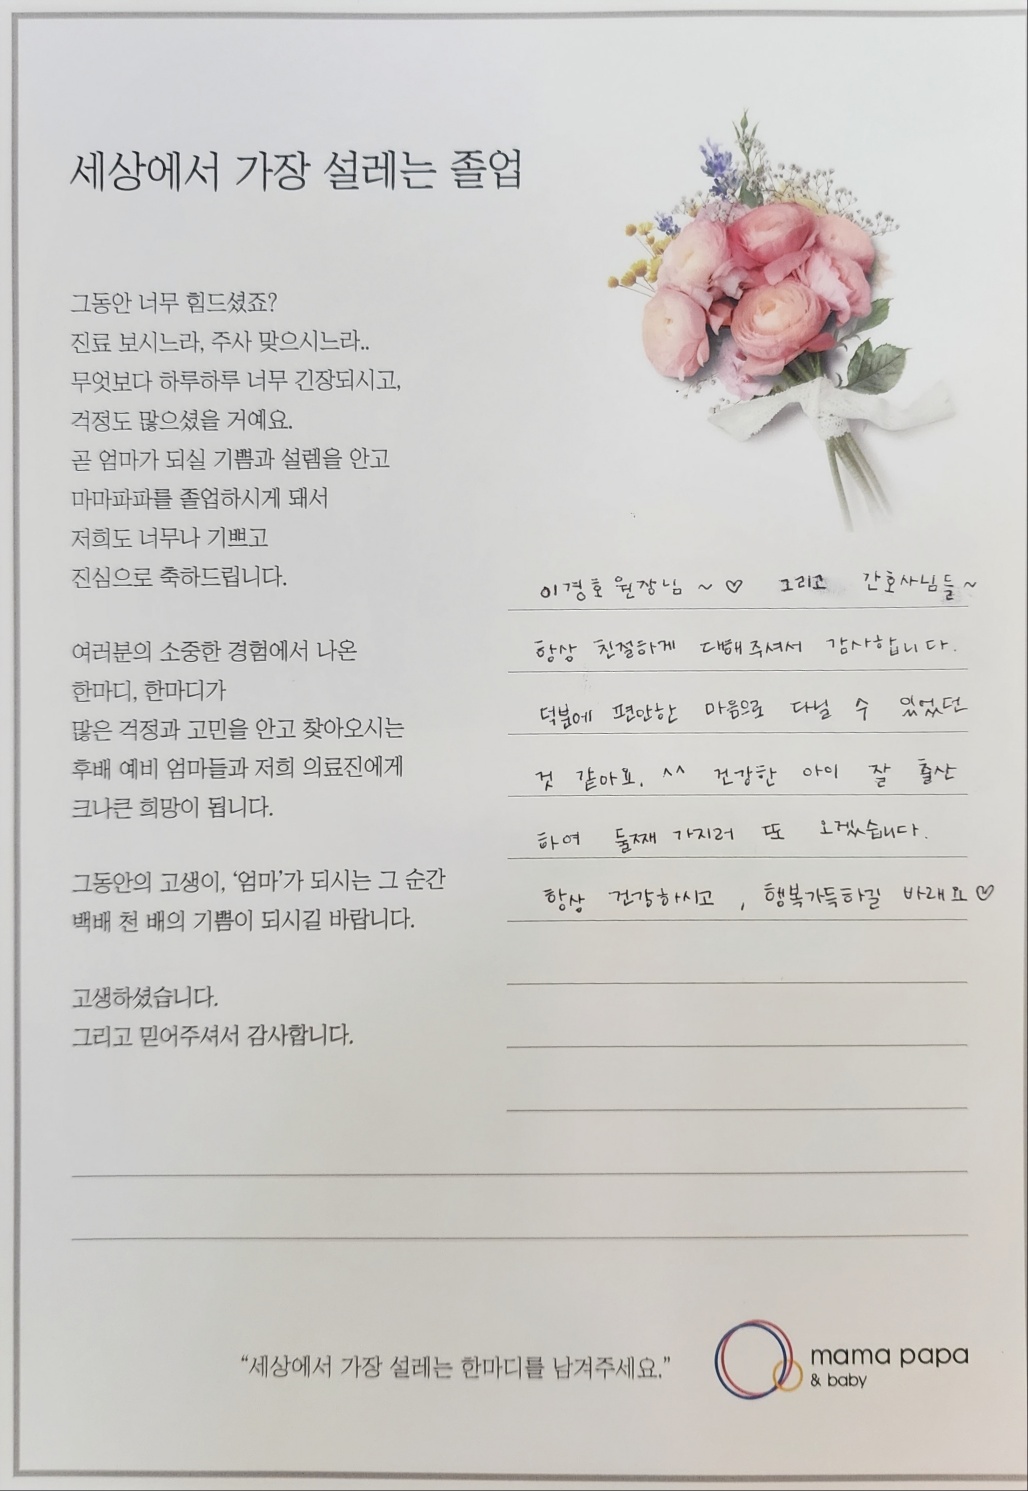 세상에서 가장 설레는 졸업
그동안 너무 힘드셨죠?
진료 보시느라, 주사 맞으시느라..
무엇보다 하루하루 너무 긴장되시고,
걱정도 많으셨을 거예요.
곧 엄마가 되실 기쁨과 설렘을 안고
마마파파를 졸업하시게 돼서
저희도 너무나 기쁘고
진심으로 축하드립니다.
여러분의 소중한 경험에서 나온
한마디, 한마디가
많은 걱정과 고민을 안고 찾아오시는
후배 예비 엄마들과 저희 의료진에게
크나큰 희망이 됩니다.
그동안의 고생이, '엄마'가 되시는 그 순간
백배 천 배의 기쁨이 되시길 바랍니다.
고생하셨습니다.
그리고 믿어주셔서 감사합니다.
이경호 원장님 ~ ♡ 그리고 간호사님들 ~
항상 친절하게 대해주셔서 감사합니다.
덕분에 편안한 마음으로 다닐 수 있었던
것 같아요. ^^ 건강한 아이 잘 출산
하여 둘째 가지러 또 오겠습니다.
항상 건강하시고, 행복가득하길 바래요♡
"세상에서 가장 설레는 한마디를 남겨주세요."
mama papa
& baby